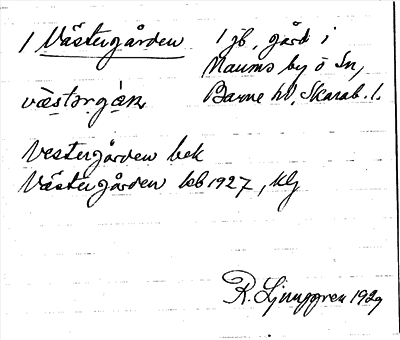 1 Västergården 1 jb, gård i
Naums by o Sn,
västərgån Barne hd, Skarab. l.
Vestergården bek
Västergården kb 1927, klj
R. Ljunggren 1929